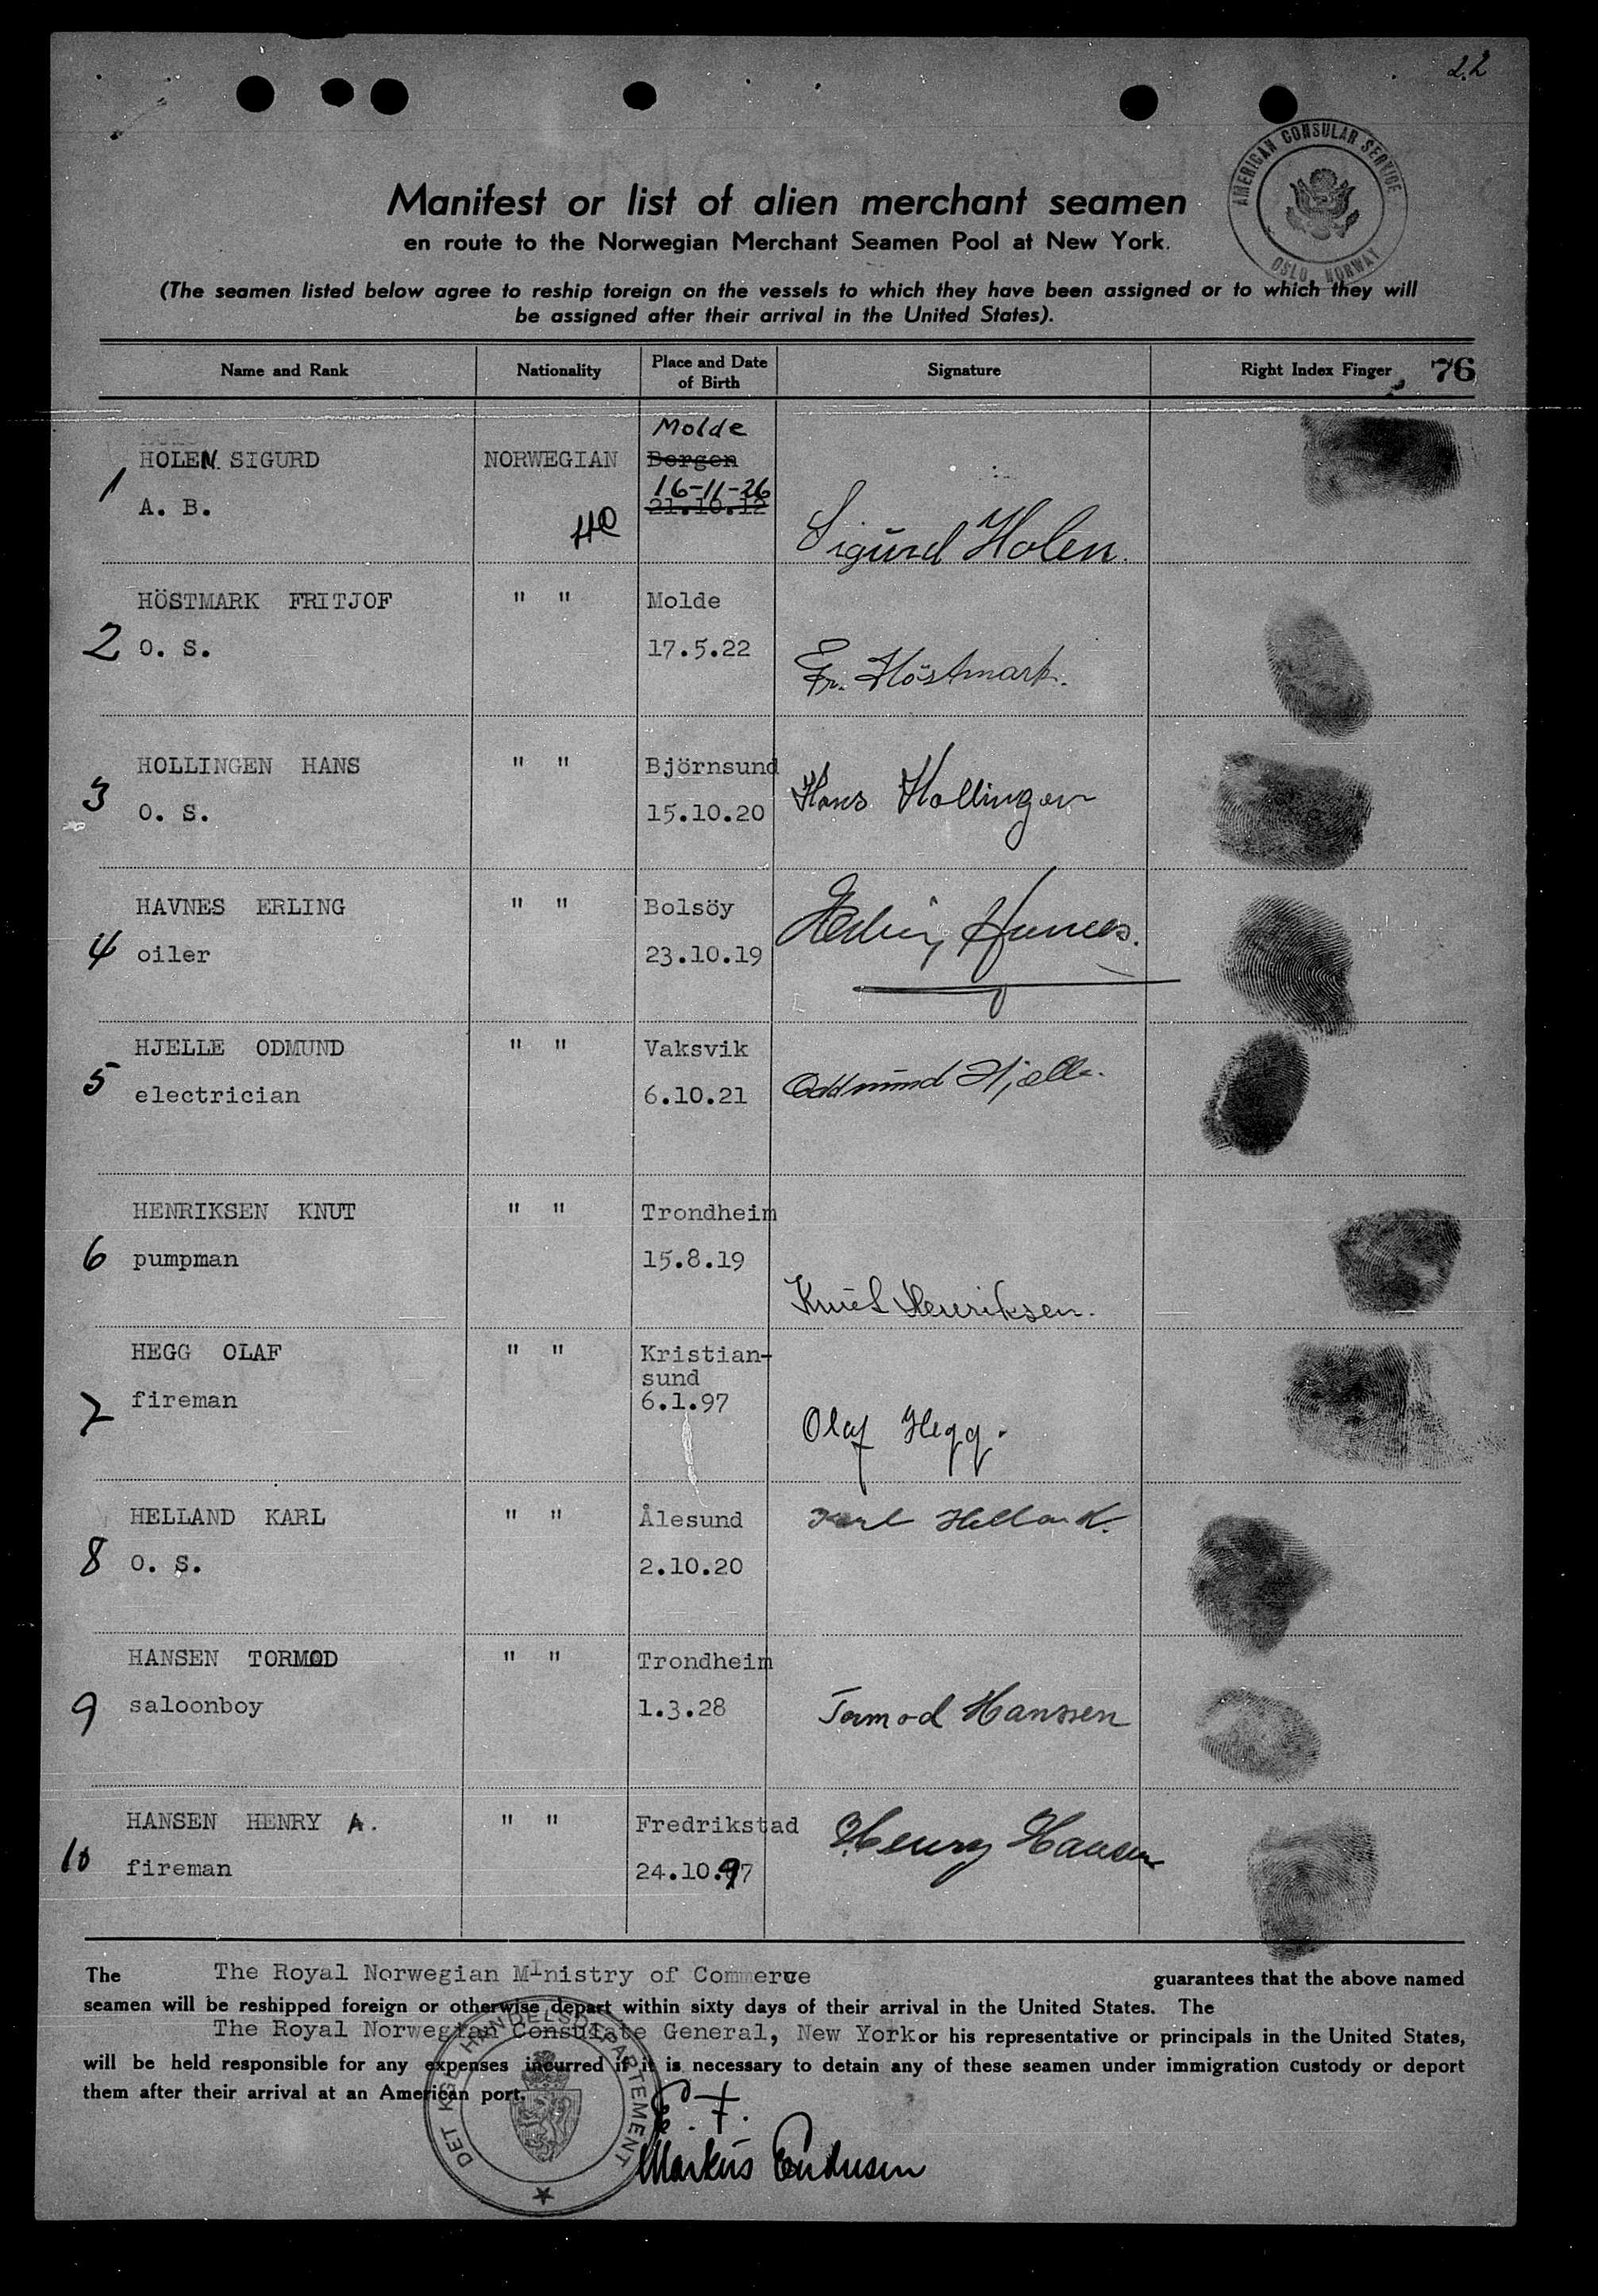 22
AMERICAN CONSULAR SERVICE
OSLO, NORWAY
Manifest or list of alien merchant seamen
en route to the Norwegian Merchant Seamen Pool at New York.
(The seamen listed below agree to reship foreign on the vessels to which they have been assigned or to which they will
be assigned after their arrival in the United States).
Name and Rank Nationality Place and Date of Birth Signature Right Index Finger 76
Molde
1 HOLEN SIGURD NORWEGIAN Bergen
16-11-26
A. B. 21.10.12
Sigurd Holen.
HÖSTMARK FRITJOF " " Molde
2 O. S. 17.5.22
Fr. Höstmark.
HOLLINGEN HANS " " Björnsund
3 O. S. 15.10.20 Hans Hollingen
HAVNES ERLING " " Bolsöy
4 oiler 23.10.19
HJELLE ODMUND " " Vaksvik
5 electrician 6.10.21 Oddmund Hjelle.
HENRIKSEN KNUT " " Trondheim
6 pumpman 15.8.19
Knut Henriksen.
HEGG OLAF " " Kristian-
sund
7 fireman 6.1.97
Olaf Hegg.
HELLAND KARL " " Ålesund Karl Helland.
8 O. S. 2.10.20
HANSEN TORMOD " " Trondheim
9 saloonboy 1.3.28 Tormod Hanssen
HANSEN HENRY A. " " Fredrikstad Henry Hansen
10 fireman 24.10.97
The The Royal Norwegian Ministry of Commerce guarantees that the above named
seamen will be reshipped foreign or otherwise depart within sixty days of their arrival in the United States. The
The Royal Norwegian Consulate General, New York or his representative or principals in the United States,
will be held responsible for any expenses incurred if it is necessary to detain any of these seamen under immigration custody or deport
them after their arrival at an American port.
DET KGL. HANDELSDEPARTEMENT
E. F.
Markus